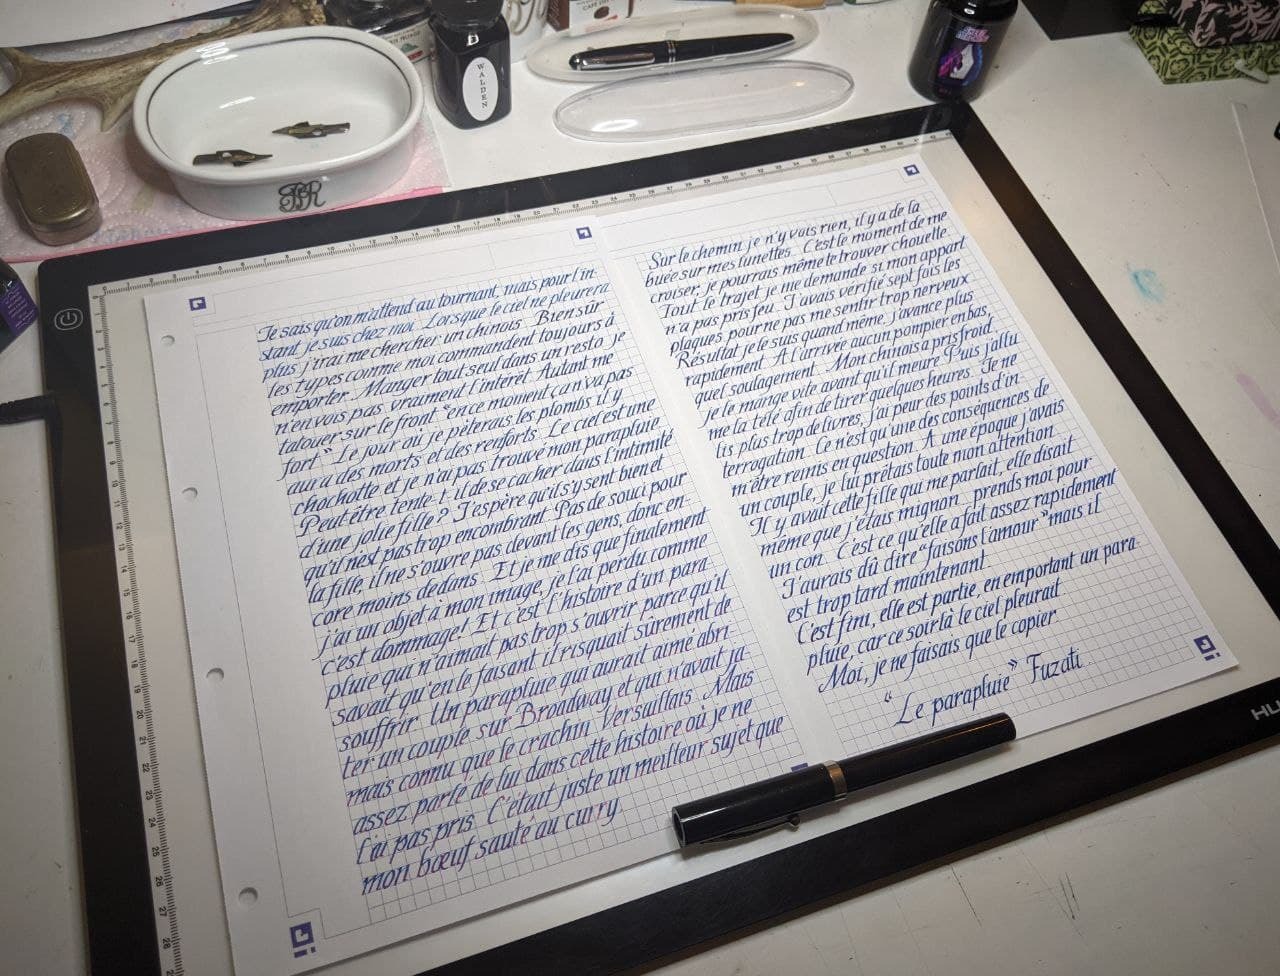 WALDEN
Je sais qu'on m'attend au tournant, mais pour l'in-
stant je suis chez moi. Lorsque le ciel ne pleurera
plus j'irai me chercher un chinois. Bien sûr
les types comme moi commandent toujours à
emporter. Manger tout seul dans un resto je
n'en vois pas vraiment l'intérêt. Autant me
tatouer sur le front "en ce moment ça n'va pas
fort". Le jour où je pèterais les plombs il y
aura des morts et des renforts. Le ciel est une
chochotte et je n'ai pas trouvé mon parapluie
Peut-être tente-t-il de se cacher dans l'intimité
d'une jolie fille? J'espère qu'ils s'y sent bien et
qu'il n'est pas trop encombrant. Pas de souci pour
la fille, il ne s'ouvre pas devant les gens, donc en-
core moins dedans. Et je me dis que finalement
j'ai un objet à mon image, je l'ai perdu comme
c'est dommage! Et c'est l'histoire d'un para-
pluie qui n'aimait pas trop s'ouvrir parce qu'il
savait qu'en le faisant il risquait sûrement de
souffrir. Un parapluie qui aurait aimé abri-
ter un couple sur Broadway et qui n'avait ja-
mais connu que le crachin Versaillais. Mais
assez parlé de lui dans cette histoire où je ne
l'ai pas pris. C'était juste un meilleur sujet que
mon bœuf sauté au curry
Sur le chemin je n'y vois rien, il y a de la
buée sur mes lunettes. C'est le moment de me
croiser, je pourrais même te trouver chouette.
Tout le trajet je me demande si mon appart
n'a pas pris feu. J'avais vérifié sept fois les
plaques pour ne pas me sentir trop nerveux
Résultat je le suis quand même, j'avance plus
rapidement. A l'arrivée aucun pompier en bas,
quel soulagement. Mon chinois a pris froid
je le mange vite avant qu'il meure. Puis j'allu
me la télé afin de tirer quelques heures. Je ne
lis plus trop de livres, j'ai peur des points d'in
terrogation. Ce n'est qu'une des conséquences de
m'être remis en question. A une époque j'avais
un couple, je lui prêtais toute mon attention
Il y avait cette fille qui me parlait, elle disait
même que j'étais mignon... prends moi pour
un con. C'est ce qu'elle a fait assez rapidement
J'aurais dû dire "faisons l'amour" mais il
est trop tard maintenant
C'est fini, elle est partie, en emportant un para-
pluie, car ce soir là le ciel pleurait
Moi, je ne faisais que le copier
"Le parapluie" Fuzati